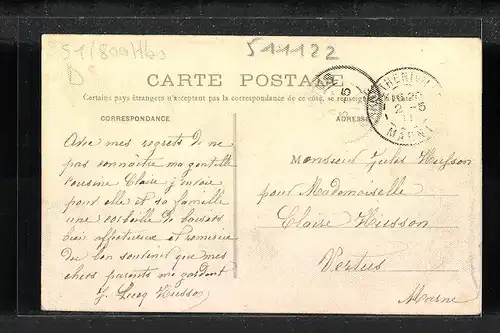 511122
CARTE POSTALE
Certains pays étrangers n'acceptant pas la correspondance de ce côté, se renseigner
CORRESPONDANCE
ADRESSE
Avec mes regrets de ne
pas connaître ma gentille
cousine Claire j'envoie
pour elle et sa famille
une corbeille de baisers
bien affectueux et
du bon souvenir que mes
chers parents me gardent
J. Lucq Husson
Monsieur Jules Husson
pour Mademoiselle
Claire Husson
Vertus
Marne